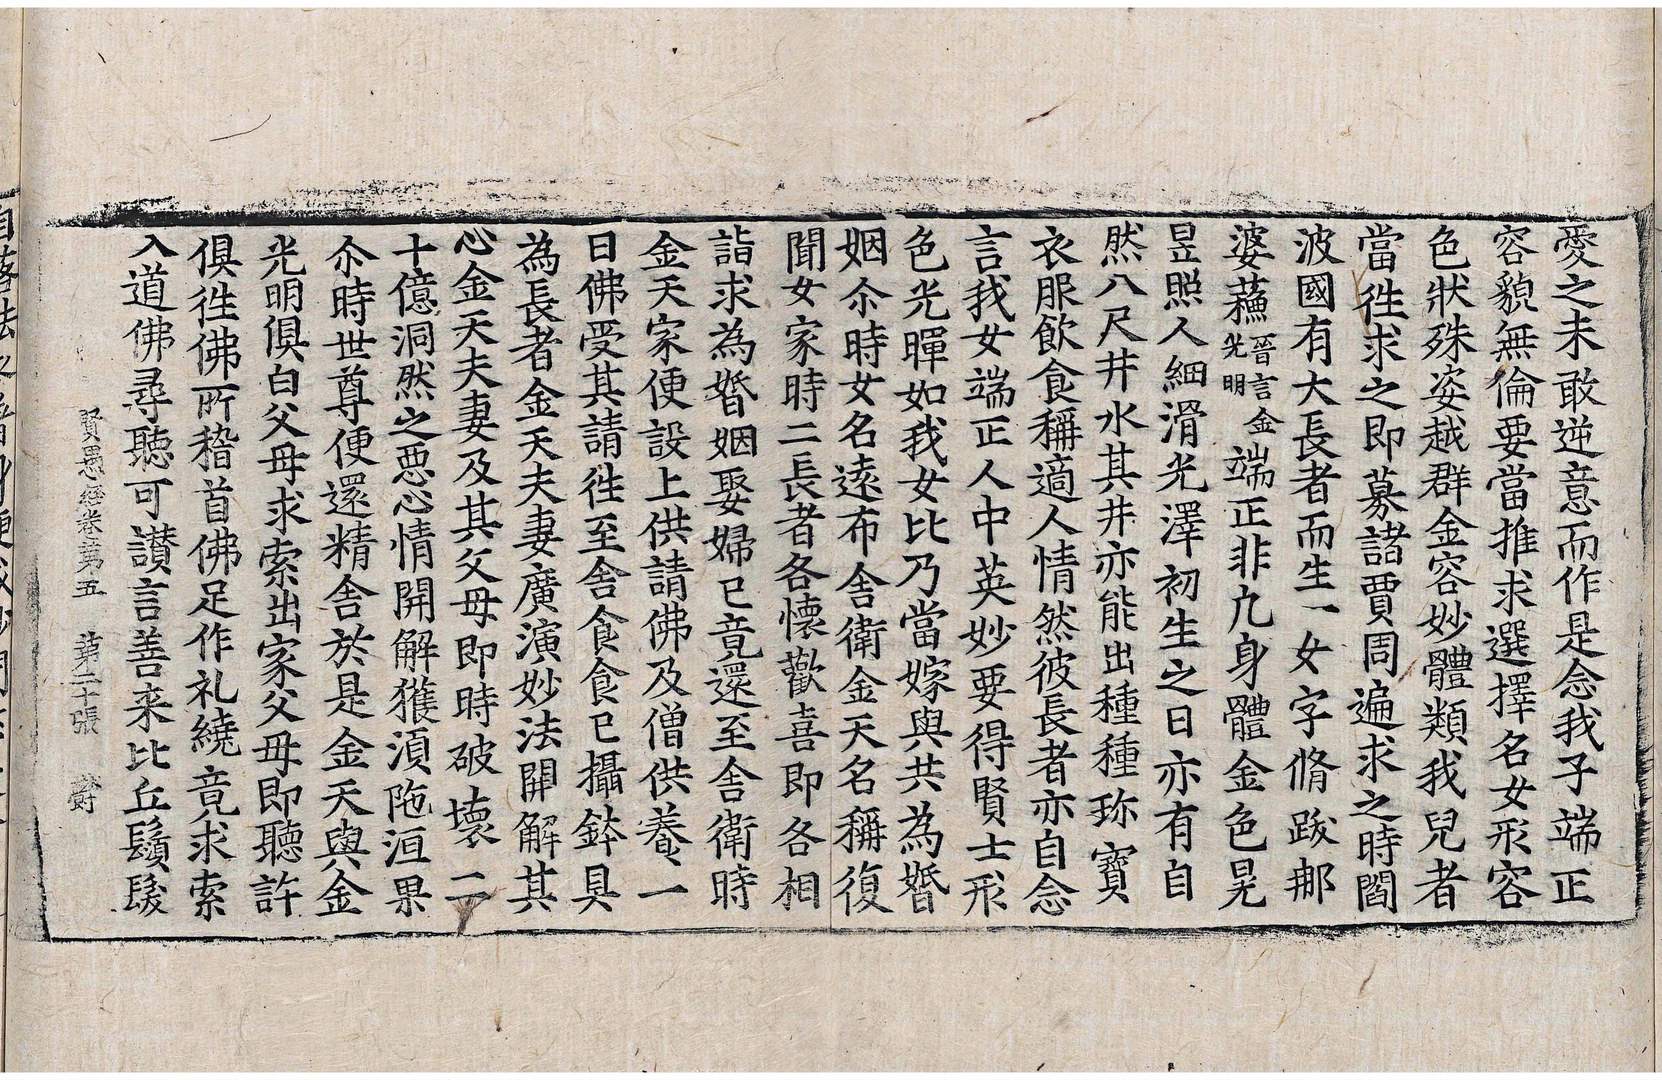 愛之未敢逆意而作是念我子端正
容貌無倫要當推求選擇名女形容
色狀殊姿越群金容妙體類我兒者
當徃求之即募諸賈周遍求之時閻
波國有大長者而生一女字脩跋那
婆蘓晉言金光明端正非凢身體金色晃
昱照人細滑光澤初生之日亦有自
然八尺井水其井亦能出種種珎寶
衣服飲食稱適人情然彼長者亦自念
言我女端正人中英妙要得賢士形
色光暉如我女比乃當嫁與共為婚
姻尒時女名逺布舍衛金天名稱復
聞女家時二長者各懷歡喜即各相
詣求為婚姻娶婦已竟還至舍衛時
金天家便設上供請佛及僧供養一
日佛受其請徃至舍食食已攝鉢具
為長者金天夫妻廣演妙法開解其
心金天夫妻及其父母即時破壞二
十億洞然之惡心情開解獲湏陁洹果
尒時世尊便還精舍於是金天與金
光明俱白父母求索出家父母即聽許
俱徃佛所稽首佛足作礼繞竟求索
入道佛尋聽可讃言善来比丘鬚髮
賢愚經卷第五 第二十張